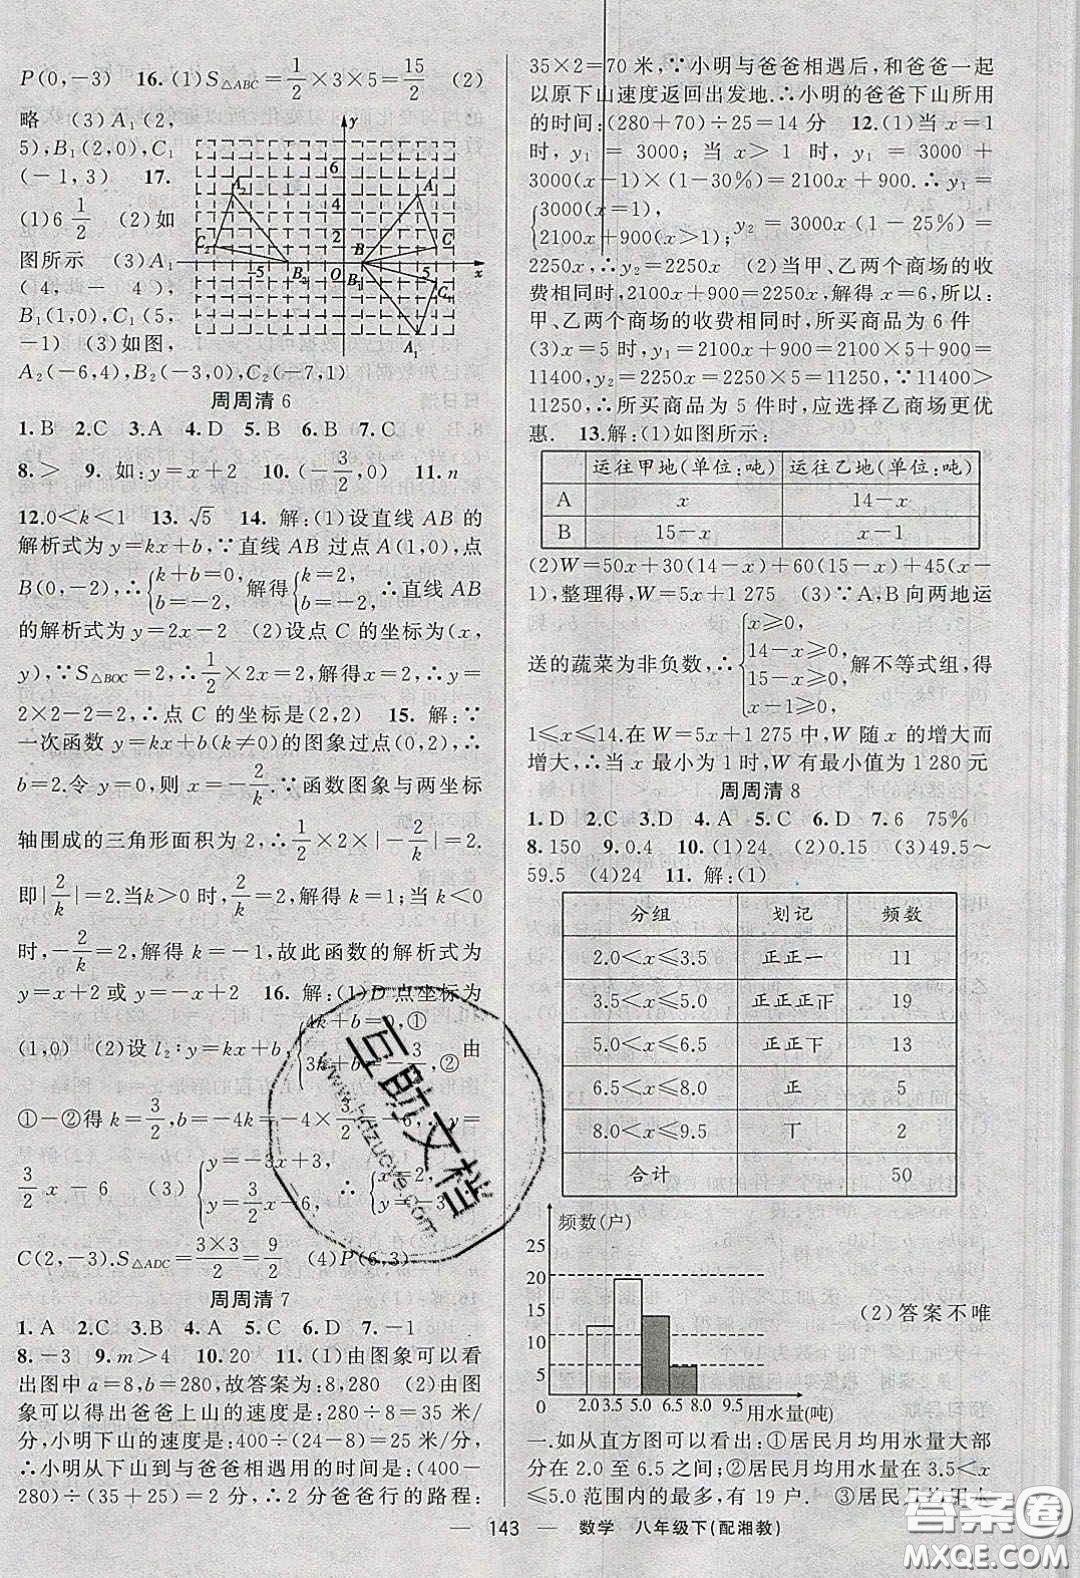 P(0,-3)　16.(1)S△ABC=1/2×3×5=15/2　(2)
略　(3)A₁(2,
5),B₁(2,0),C₁
(-1,3)　17.
(1)6 1/2　(2)如
图所示　(3)A₁
(4,-4),
B₁(1,0),C₁(5,
-1)　(3)如图,
A₂(-6,4),B₂(-3,0),C₂(-7,1)
y
6
4
2
-5
O
5
x
A₂
A
C₂
C
B₂
B
B₁
C₁
A₁
周周清6
1.B　2.C　3.A　4.D　5.B　6.B　7.C
8.>　9.如:y=x+2　10.(-3/2,0)　11.n
12.0<k<1　13.√5　14.解:(1)设直线AB的
解析式为y=kx+b,∵直线AB过点A(1,0),点
B(0,-2),∴{k+b=0, b=-2.解得{k=2, b=-2.∴直线AB
的解析式为y=2x-2　(2)设点C的坐标为(x,
y),∵S△BOC=2,∴1/2×2×x=2,解得x=2,∴y=
2×2-2=2,∴点C的坐标是(2,2)　15.解:∵
一次函数y=kx+b(k≠0)的图象过点(0,2),∴
b=2.令y=0,则x=-2/k.∵函数图象与两坐标
轴围成的三角形面积为2.∴1/2×2×|-2/k|=2.
即|2/k|=2,当k>0时,2/k=2,解得k=1;当k<0
时,-2/k=2,解得k=-1,故此函数的解析式为
y=x+2或y=-x+2　16.解:(1)D点坐标为
(1,0)　(2)设l₂:y=kx+b,{4k+b=0,① 3k+b=-3/2,② 由
①-②得k=3/2,b=-4k=-4×3/2=-6,∴y=
3/2x-6　(3){y=-3x+3, y=3/2x-6, ∴{x=2, y=-3.
C(2,-3).S△ADC=3×3/2=9/2　(4)P(6,3)
周周清7
1.A　2.C　3.B　4.A　5.C　6.D　7.-1
8.-3　9.m>4　10.20　11.(1)由图象可以看
出图中a=8,b=280,故答案为:8,280　(2)由图
象可以得出爸爸上山的速度是:280÷8=35米/
分,小明下山的速度是:400÷(24-8)=25米/分,
∴小明从下山到与爸爸相遇用的时间是:(400-
280)÷(35+25)=2分,∴2分爸爸行的路程:
35×2=70米,∵小明与爸爸相遇后,和爸爸一起
以原下山速度返回出发地.∴小明的爸爸下山所用
的时间:(280+70)÷25=14分　12.(1)当x=1
时,y₁=3000;当x>1时,y₁=3000+
3000(x-1)×(1-30%)=2100x+900.∴y₁=
{3000(x=1) 2100x+900(x>1), y₂=3000x(1-25%)=
2250x,∴y₂=2250x　(2)当甲、乙两个商场的收
费相同时,2100x+900=2250x,解得x=6,所以:
甲、乙两个商场的收费相同时,所买商品为6件
(3)x=5时,y₁=2100x+900=2100×5+900=
11400,y₂=2250x=2250×5=11250,∵11400>
11250,∴所买商品为5件时,应选择乙商场更优
惠.　13.解:(1)如图所示:
运往甲地(单位:吨)　运往乙地(单位:吨)
A　x　14-x
B　15-x　x-1
(2)W=50x+30(14-x)+60(15-x)+45(x-
1),整理得,W=5x+1 275　(3)∵A,B向两地运
送的蔬菜为非负数,∴{x≥0, 14-x≥0, 15-x≥0, x-1≥0, 解不等式组,得
1≤x≤14.在W=5x+1 275中,W随x的增大而
增大,∴当x最小为1时,W有最小值为1 280元
周周清8
1.D　2.C　3.D　4.A　5.C　6.D　7.6　75%
8.150　9.0.4　10.(1)24　(2)0.15　(3)49.5~
59.5　(4)24　11.解:(1)
分组　划记　频数
2.0<x≤3.5　正正一　11
3.5<x≤5.0　正正正𤴓　19
5.0<x≤6.5　正正下　13
6.5<x≤8.0　正　5
8.0<x≤9.5　丅　2
合计　50
频数(户)
25
20
15
10
5
0
2.0 3.5 5.0 6.5 8.0 9.5
用水量(吨)
(2)答案不唯
一.如从直方图可以看出:①居民月均用水量大部
分在2.0至6.5之间;②居民月均用水量在3.5<x
≤5.0范围内的最多,有19户.　③居民月均用水
互助文档
www.hdzuoye.com
— 143 —　数学　八年级下(配湘教)
答案圈
MXQE.COM